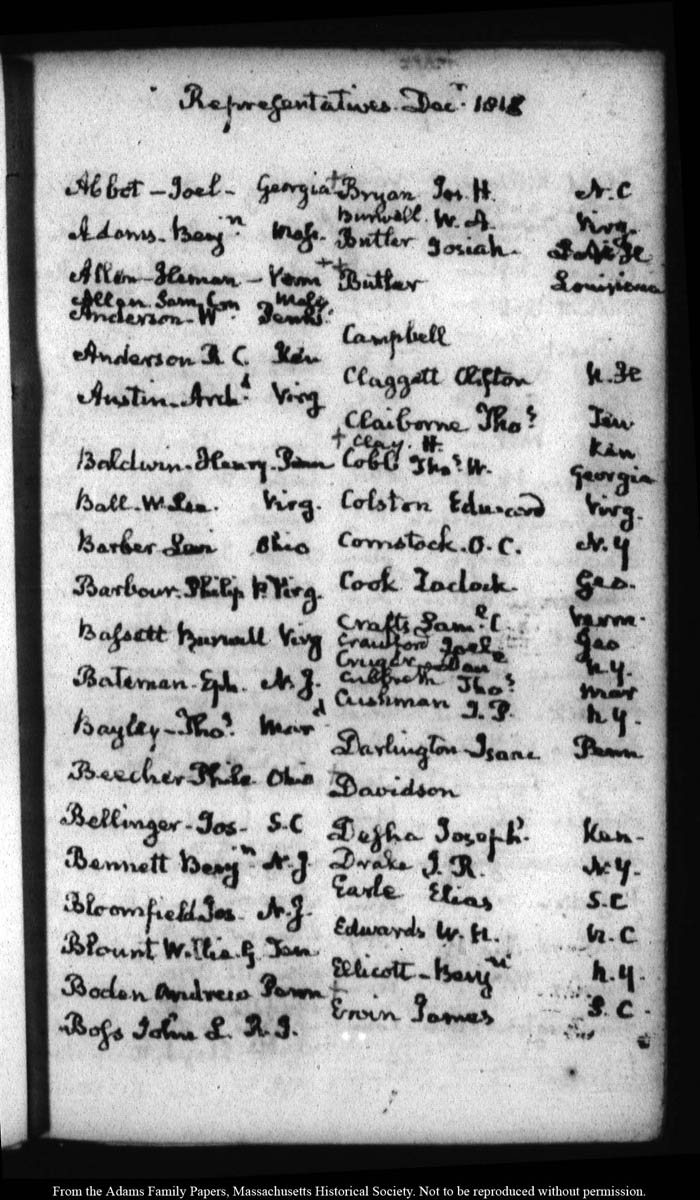 Representatives. Decr. 1818
Abbot - Joel - Georgia
Adams - Benjn. Mass.
Allen - Heman - Verm
Allen Samson Mass
Anderson - Wm. Penns.
Anderson R. C. Ken
Austin - Archd. Virg
Baldwin - Henry - Penn
Ball - W. Lee. Virg.
Barber Levi Ohio
Barbour. Philip P. Virg.
Bassett Burwell Virg
Bateman - Eph. N. J.
Bayley - Thos. Mard
Beecher Phile Ohio
Bellinger - Jos - S. C
Bennett Benjn. N. J
Bloomfield Jos. N. J.
Blount Willia. G Ten
Boden Andrew Penn
Boss John L. R. I.
+ Bryan Jos. H. N. C
Burwell. W. A. Virg.
Butler Josiah.
+ + Butler Louisiana
Campbell
Claggett Clifton N. H
Claiborne Thos. Ten
+ Clay. H. Ken
Cobb Thos. W. Georgia
Colston Edward Virg.
Comstock. O. C. N. Y
Cook Zadock. Geo.
Crafts Saml. C. Verm.
Crawford Joel Geo
Cruger Dan N. Y.
Culbreth Thos. Mar
Cushman J. P. N. Y.
Darlington Isaac Penn
+ Davidson
Desha Joseph. Ken -
Drake J. R. N. Y.
Earle Elias S. C
Edwards W. N. N. C
Ellicott - Benjn N. Y.
+ Ervin James S. C.
From the Adams Family Papers, Massachusetts Historical Society. Not to be reproduced without permission.